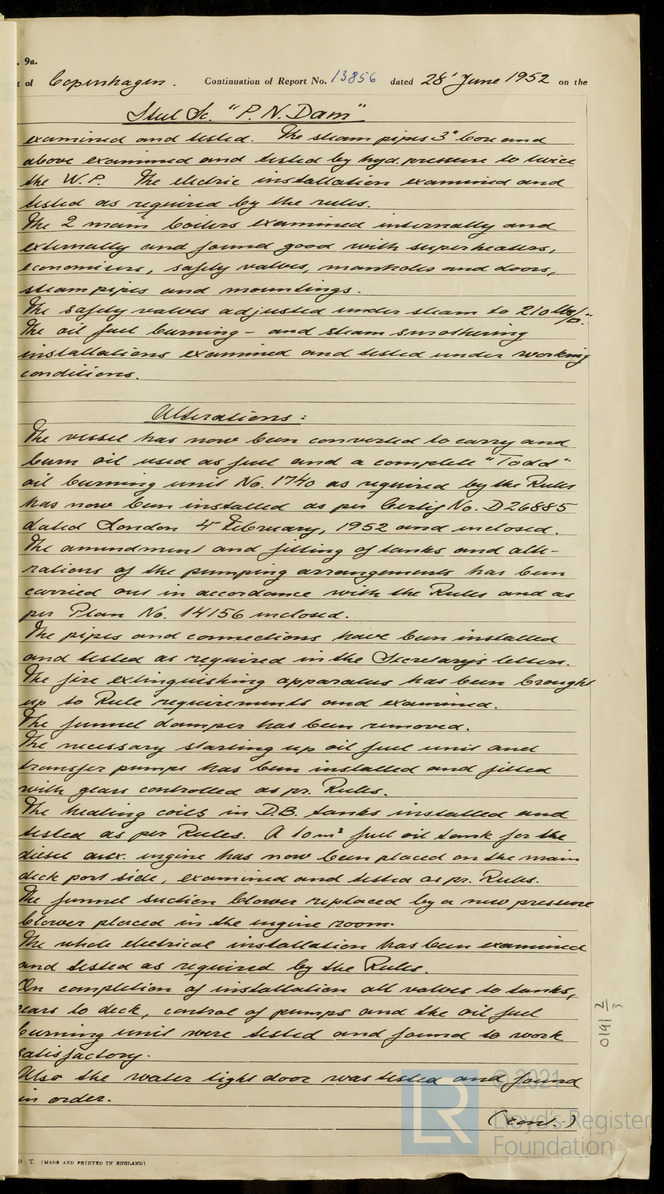 . 9a.
t of Copenhagen. Continuation of Report No. 13856 dated 28' June 1952 on the
Steel Sc. "P. N. Dam"
examined and tested. The steam pipes 3" bore and
above examined and tested by hyd. pressure to twice
the W.P. The electric installation examined and
tested as required by the rules.
The 2 main boilers examined internally and
externally and found good with superheaters,
economisers, safety valves, manholes and doors,
steampipes and mountings.
The safety valves adjusted under steam to 210 lbs/□".
The oil fuel burning - and steam smothering
installations examined and tested under working
conditions.
Alterations:
The vessel has now been converted to carry and
burn oil used as fuel and a complete "Todd"
oil burning unit No. 1740 as required by the Rules
has now been installed as per Certif. No. D 26885
dated London 4' February, 1952 and inclosed.
The amendment and fitting of tanks and alte-
rations of the pumping arrangements has been
carried out in accordance with the Rules and as
per Plan No. 14156 inclosed.
The pipes and connections have been installed
and tested as required in the Secretary's letters.
The fire extinguishing apparatus has been brought
up to Rule requirements and examined.
The funnel damper has been removed.
The necessary starting up oil fuel unit and
transfer pumps has been installed and fitted
with gears controlled as pr. Rules.
The heating coils in D.B. tanks installed and
tested as per Rules. A 10 m³ fuel oil tank for the
diesel aux. engine has now been placed on the main
deck port side, examined and tested as pr. Rules.
The funnel suction blower replaced by a new pressure
blower placed in the engine room.
The whole electrical installation has been examined
and tested as required by the Rules.
On completion of installation all valves to tanks,
gears to deck, control of pumps and the oil fuel
burning unit were tested and found to work
satisfactory.
Also the water tight door was tested and found
in order.
(cont.)
0191 2/3
T. (MADE AND PRINTED IN ENGLAND)
© 2021
LR
Lloyd's Register
Foundation